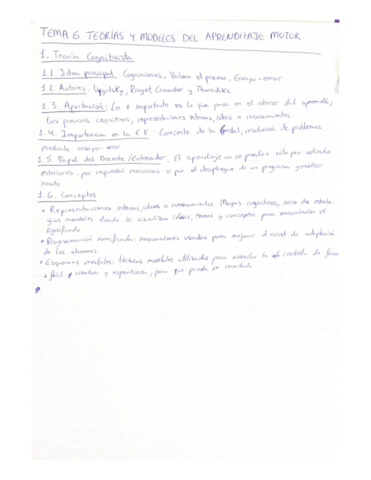 TEMA 6 TEORÍAS Y MODELOS DEL APRENDIZAJE MOTOR
1. Teoría Cognitivista
1.1 Idea principal: Cogniciones, Valora el proceso, Ensayo-error
1.2 Autores: Vigotsky, Piaget, Crowder y Thorndike.
1.3. Aportación: Lo + importante es lo que pasa en el interior del aprendiz,
los procesos cognitivos, representaciones internas, ideas o razonamientos
1.4. Importancia en la E.F. Corriente de la Gestal, resolución de problemas
mediante ensayo-error
1.5. Papel del Docente/Entrenador. El aprendizaje no se produce sólo por estímulos
exteriores, por respuestas o por el despliegue de un programa genético
innato
1.6. Conceptos
* Representaciones internas, ideas o razonamientos. Mapas cognitivos, serie de estrate-
gias mentales donde se visualizan ideas, temas y conceptos para encontrarles el
significado
* Programación ramificada: utilizados para mejorar el nivel de adaptación
de los alumnos.
* Esquemas mentales: técnicas mentales utilizadas para entender la realidad de forma
+ fácil, creativa y espontánea, para que pueda ser recordada